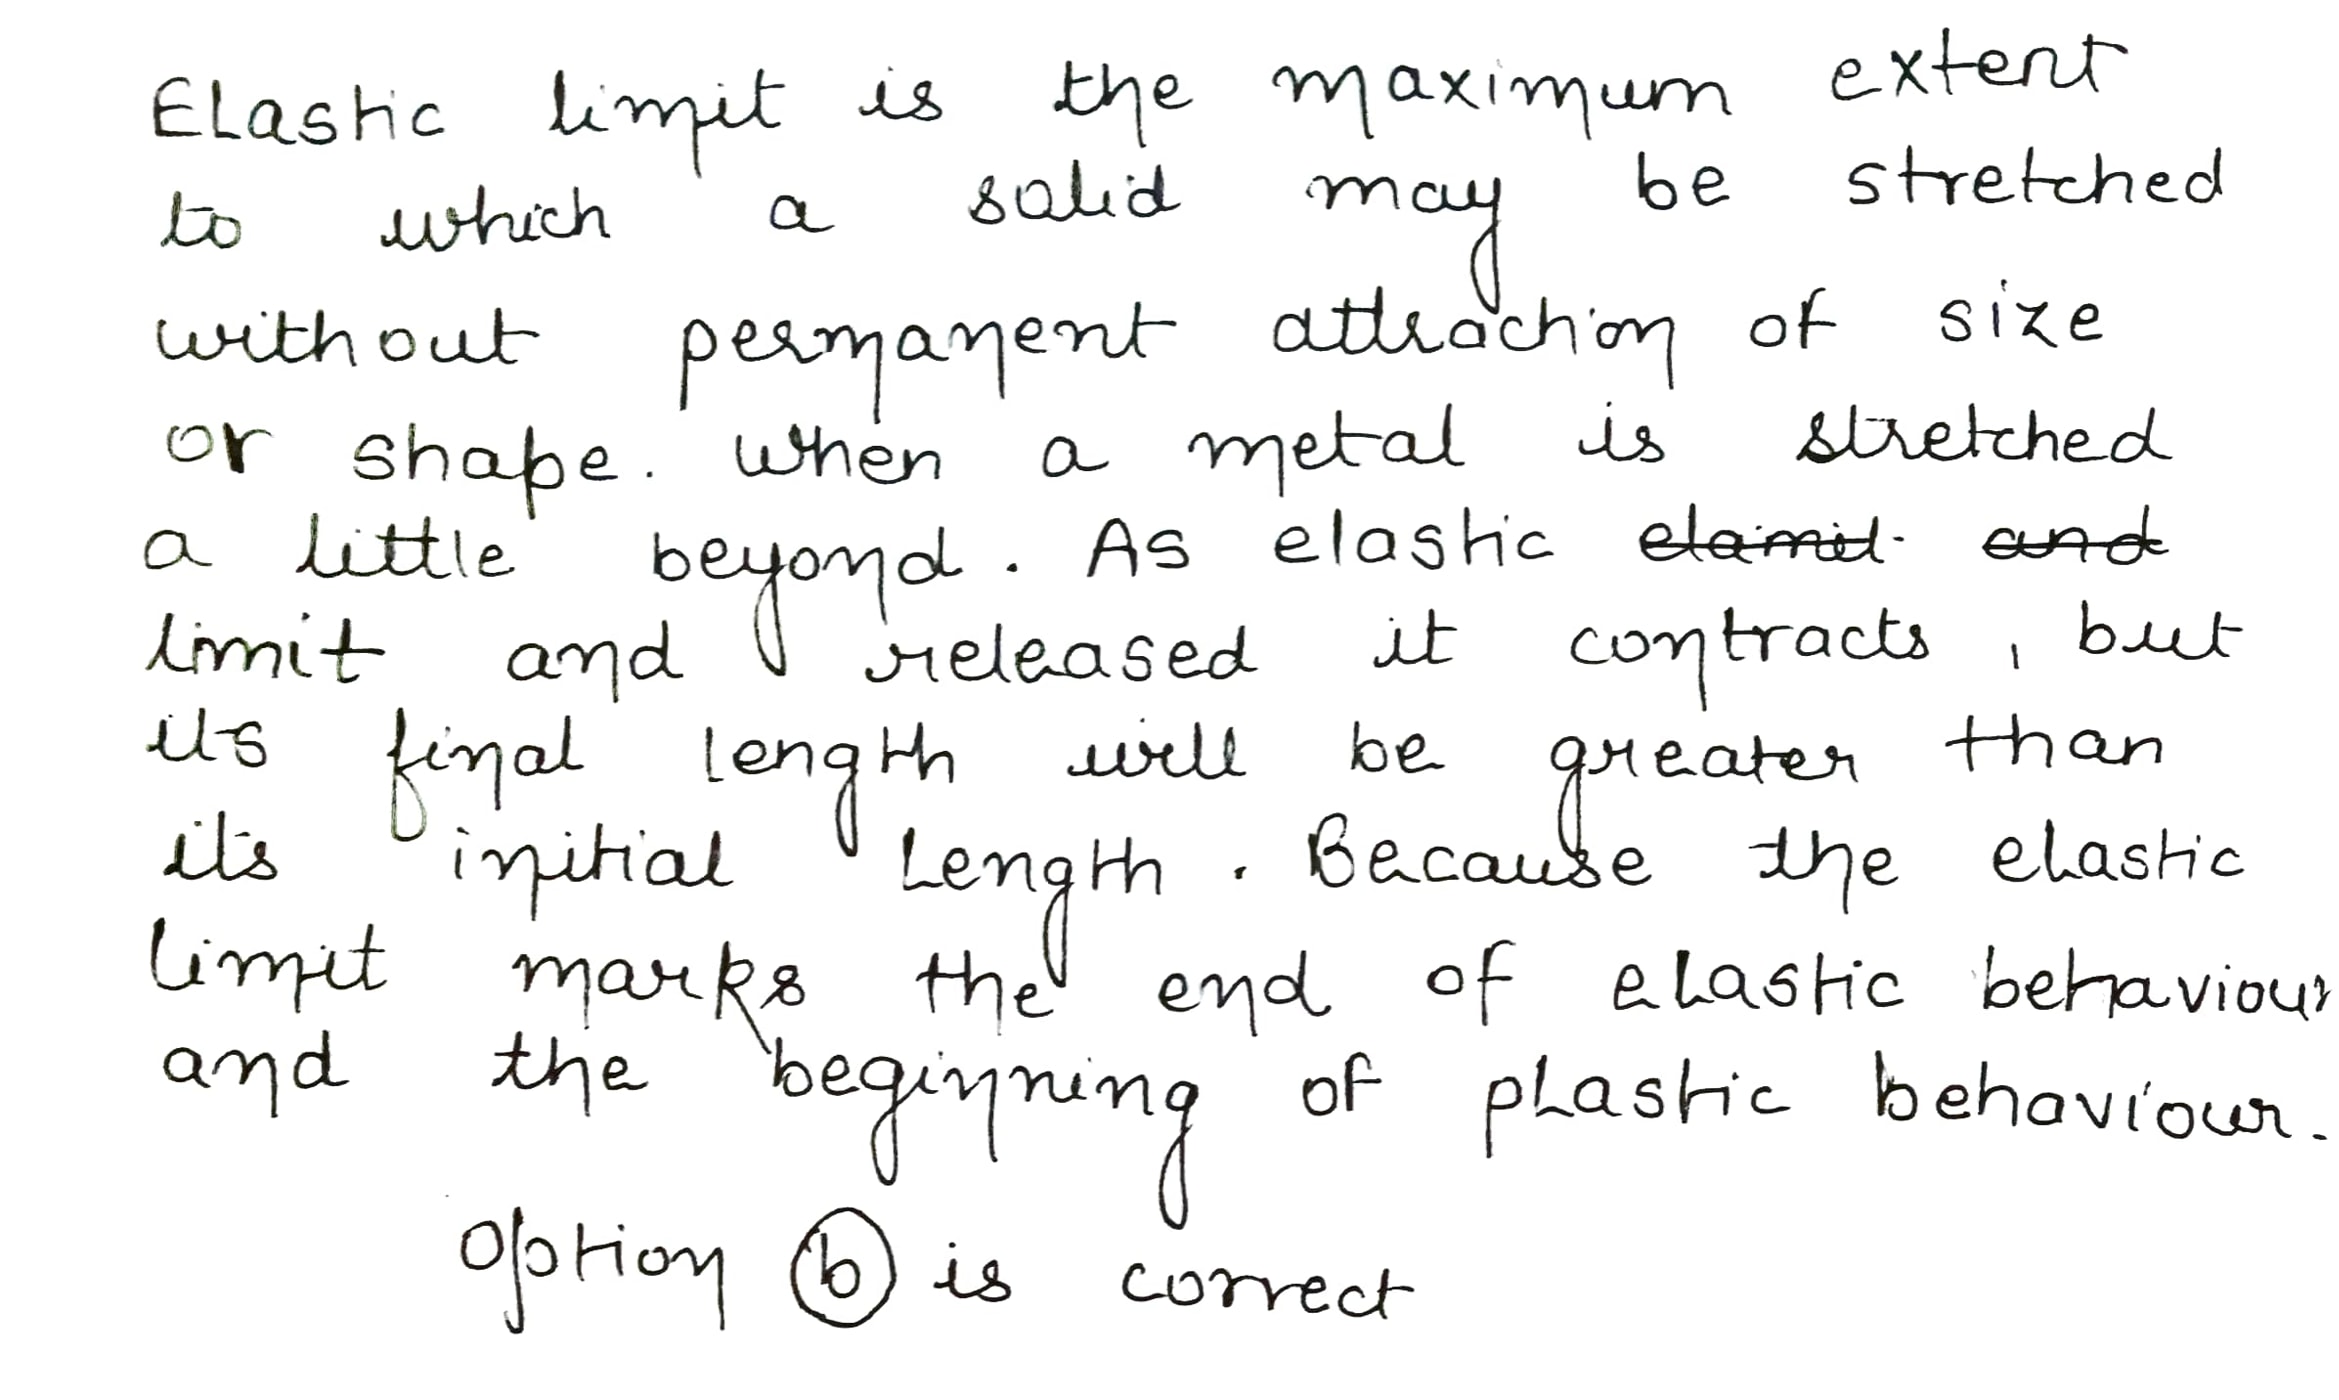 Elastic limit is the maximum extent
to which a solid may be stretched
without permanent attraction of size
or shape. When a metal is stretched
a little beyond. As elastic elamit. and
limit and released it contracts, but
its final length will be greater than
its initial Length. Because the elastic
limit marks the end of elastic behaviour
and the beginning of plastic behaviour.
option b is correct